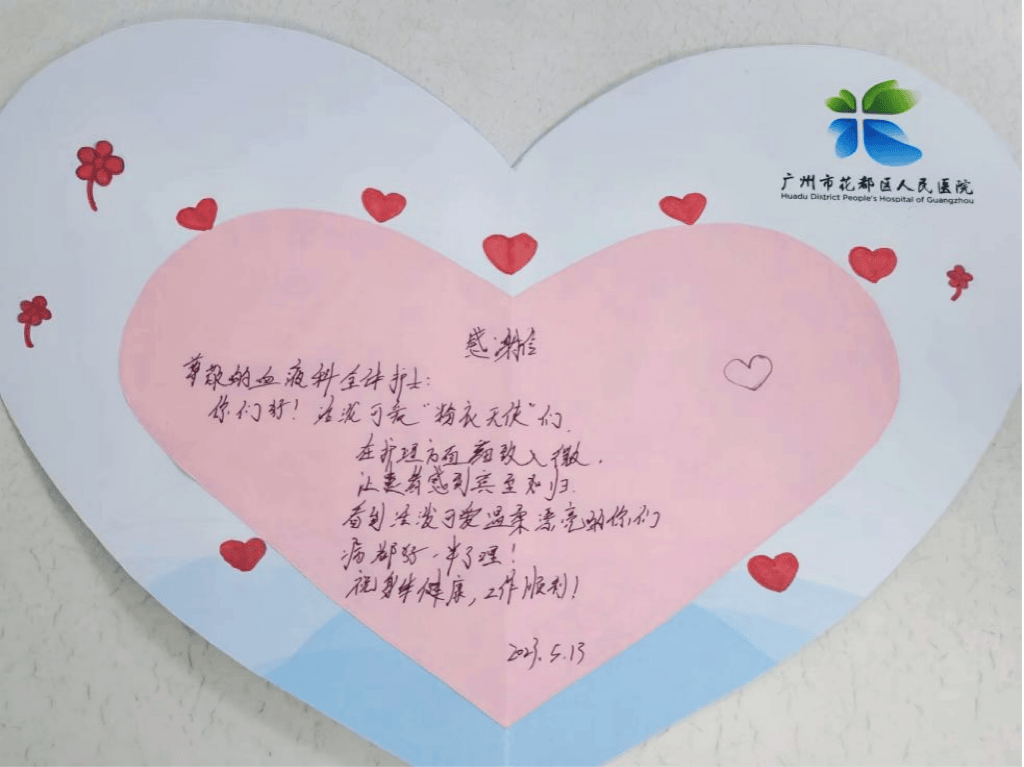 广州市花都区人民医院
Huadu District People's Hospital of Guangzhou
感谢信
尊敬的血液科全体护士:
你们好! 活泼可爱“粉衣天使”们
在护理方面细致入微.
让患者感到宾至如归.
看到活泼可爱温柔漂亮的你们
病都好一半了哩!
祝身体健康,工作顺利!
2023.5.13